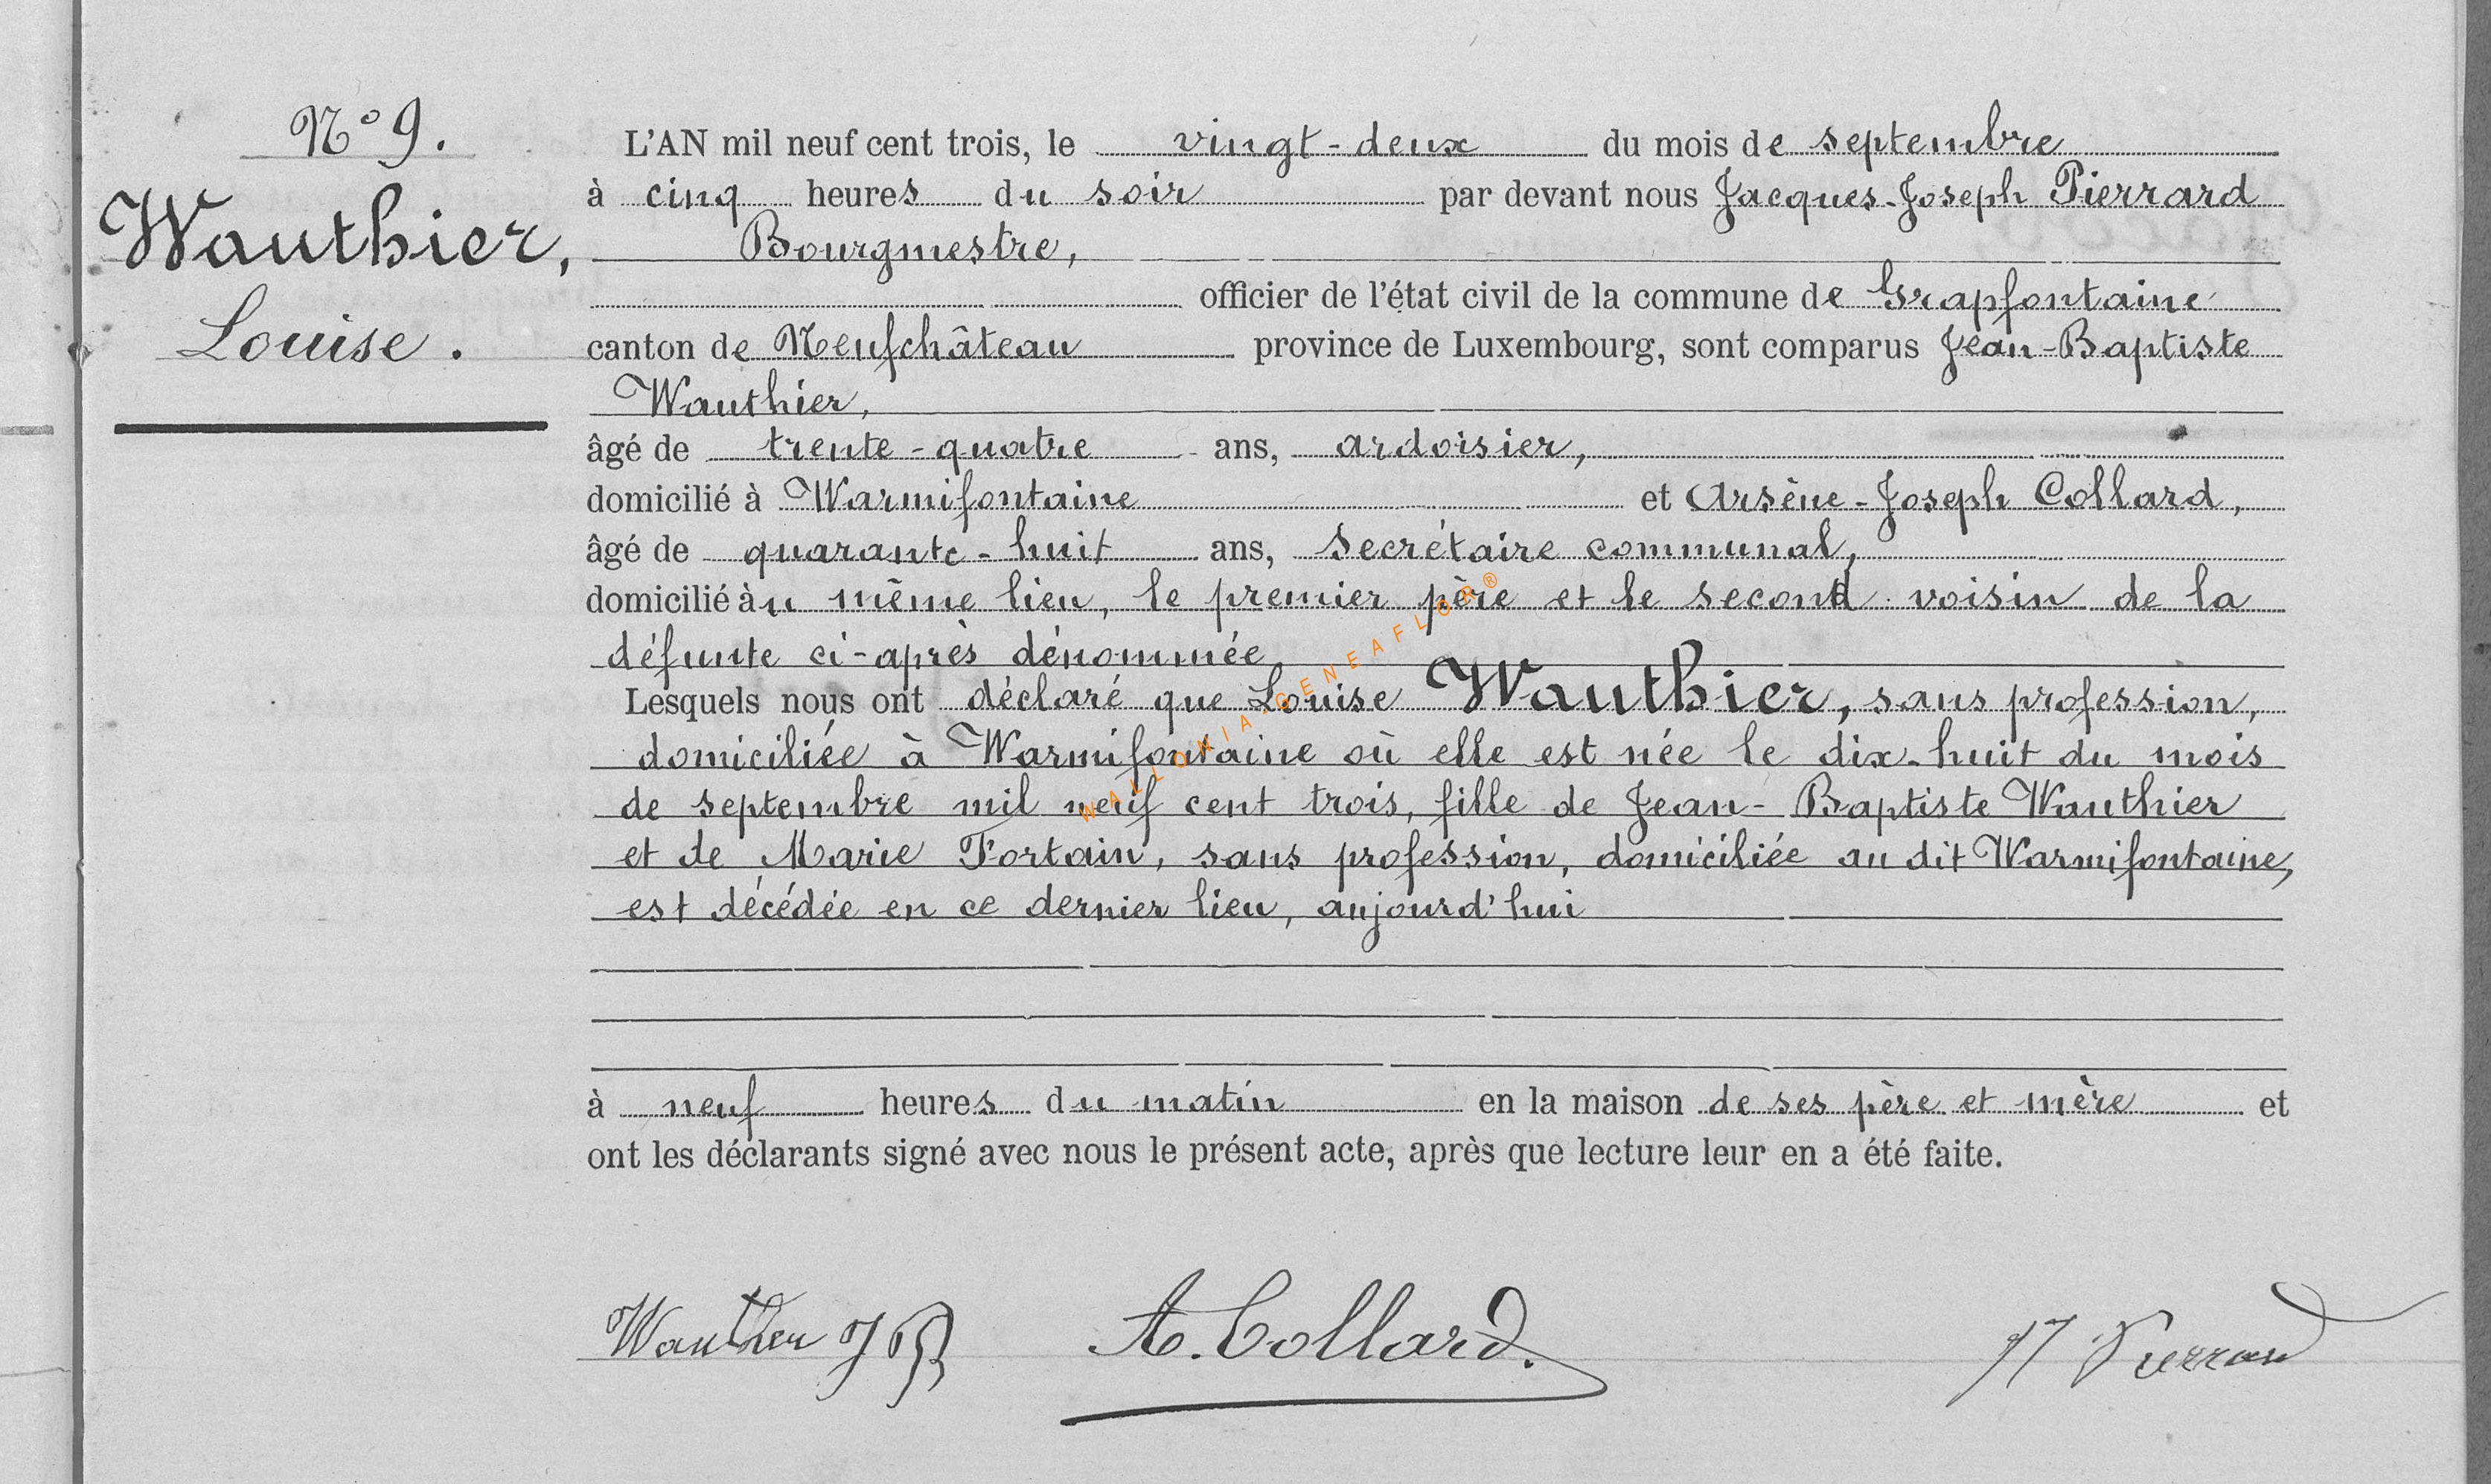 N° 9.
Wauthier,
Louise.
L'AN mil neuf cent trois, le vingt-deux du mois de septembre
à cinq heures du soir par devant nous Jacques-Joseph Pierrard
Bourgmestre,
officier de l'état civil de la commune de Grapfontaine
canton de Neufchâteau province de Luxembourg, sont comparus Jean-Baptiste
Wauthier,
âgé de trente-quatre ans, ardoisier,
domicilié à Warmifontaine et Arsène-Joseph Collard,
âgé de quarante-huit ans, secrétaire communal,
domicilié au même lieu, le premier père et le second voisin de la
défunte ci-après dénommée
Lesquels nous ont déclaré que Louise Wauthier, sans profession,
domiciliée à Warmifontaine où elle est née le dix-huit du mois
de septembre mil neuf cent trois, fille de Jean-Baptiste Wauthier
et de Marie Fortain, sans profession, domiciliée au dit Warmifontaine,
est décédée en ce dernier lieu, aujourd'hui
à neuf heures du matin en la maison de ses père et mère et
ont les déclarants signé avec nous le présent acte, après que lecture leur en a été faite.
Wauthier J B A. Collard. JJ Pierrard
WALLONIA-GENEAFLOR®